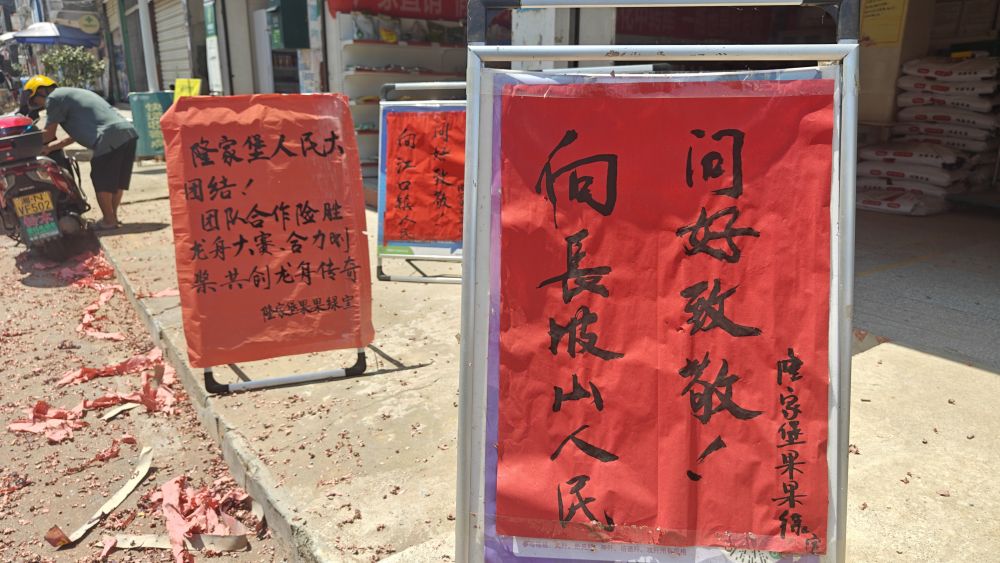 隆家堡人民大
团结!
团队合作险胜
龙舟大赛.合力划
桨共创龙舟传奇
隆家堡果果绿宝
向江口镇人民
问好致敬
向長坡山人民
问好致敬!
隆家堡果果绿宝